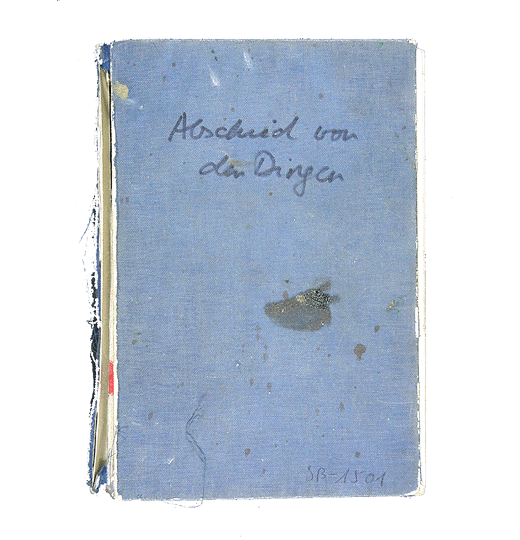 Abschied von
den Dingen
SB-1501